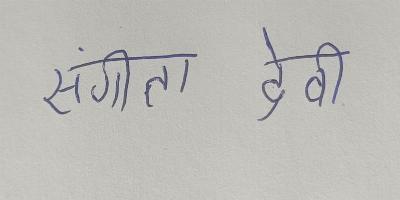 संगीता देवी